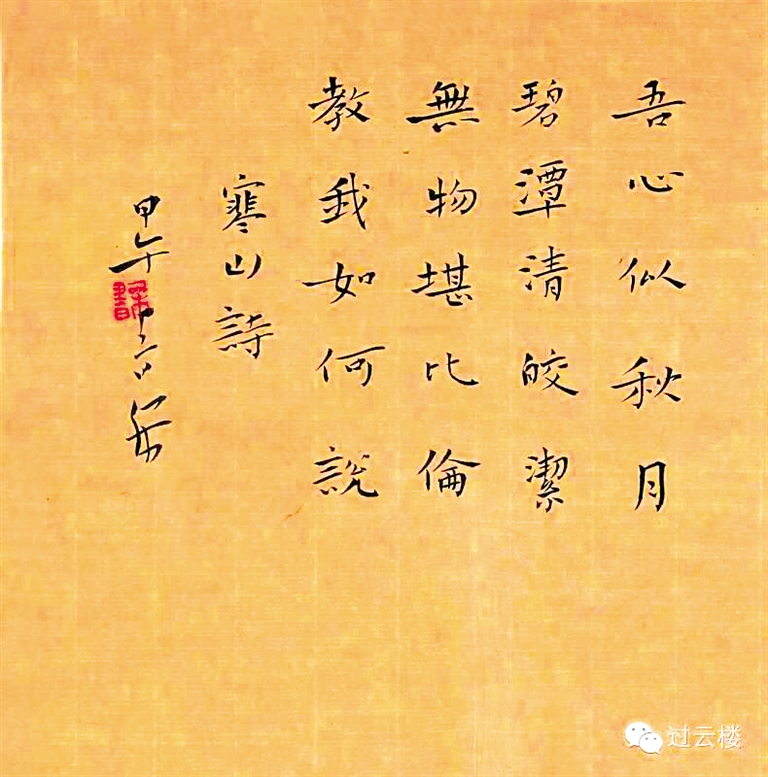 吾心似秋月
碧潭清皎潔
無物堪比倫
教我如何說
寒山詩
甲午
过云楼